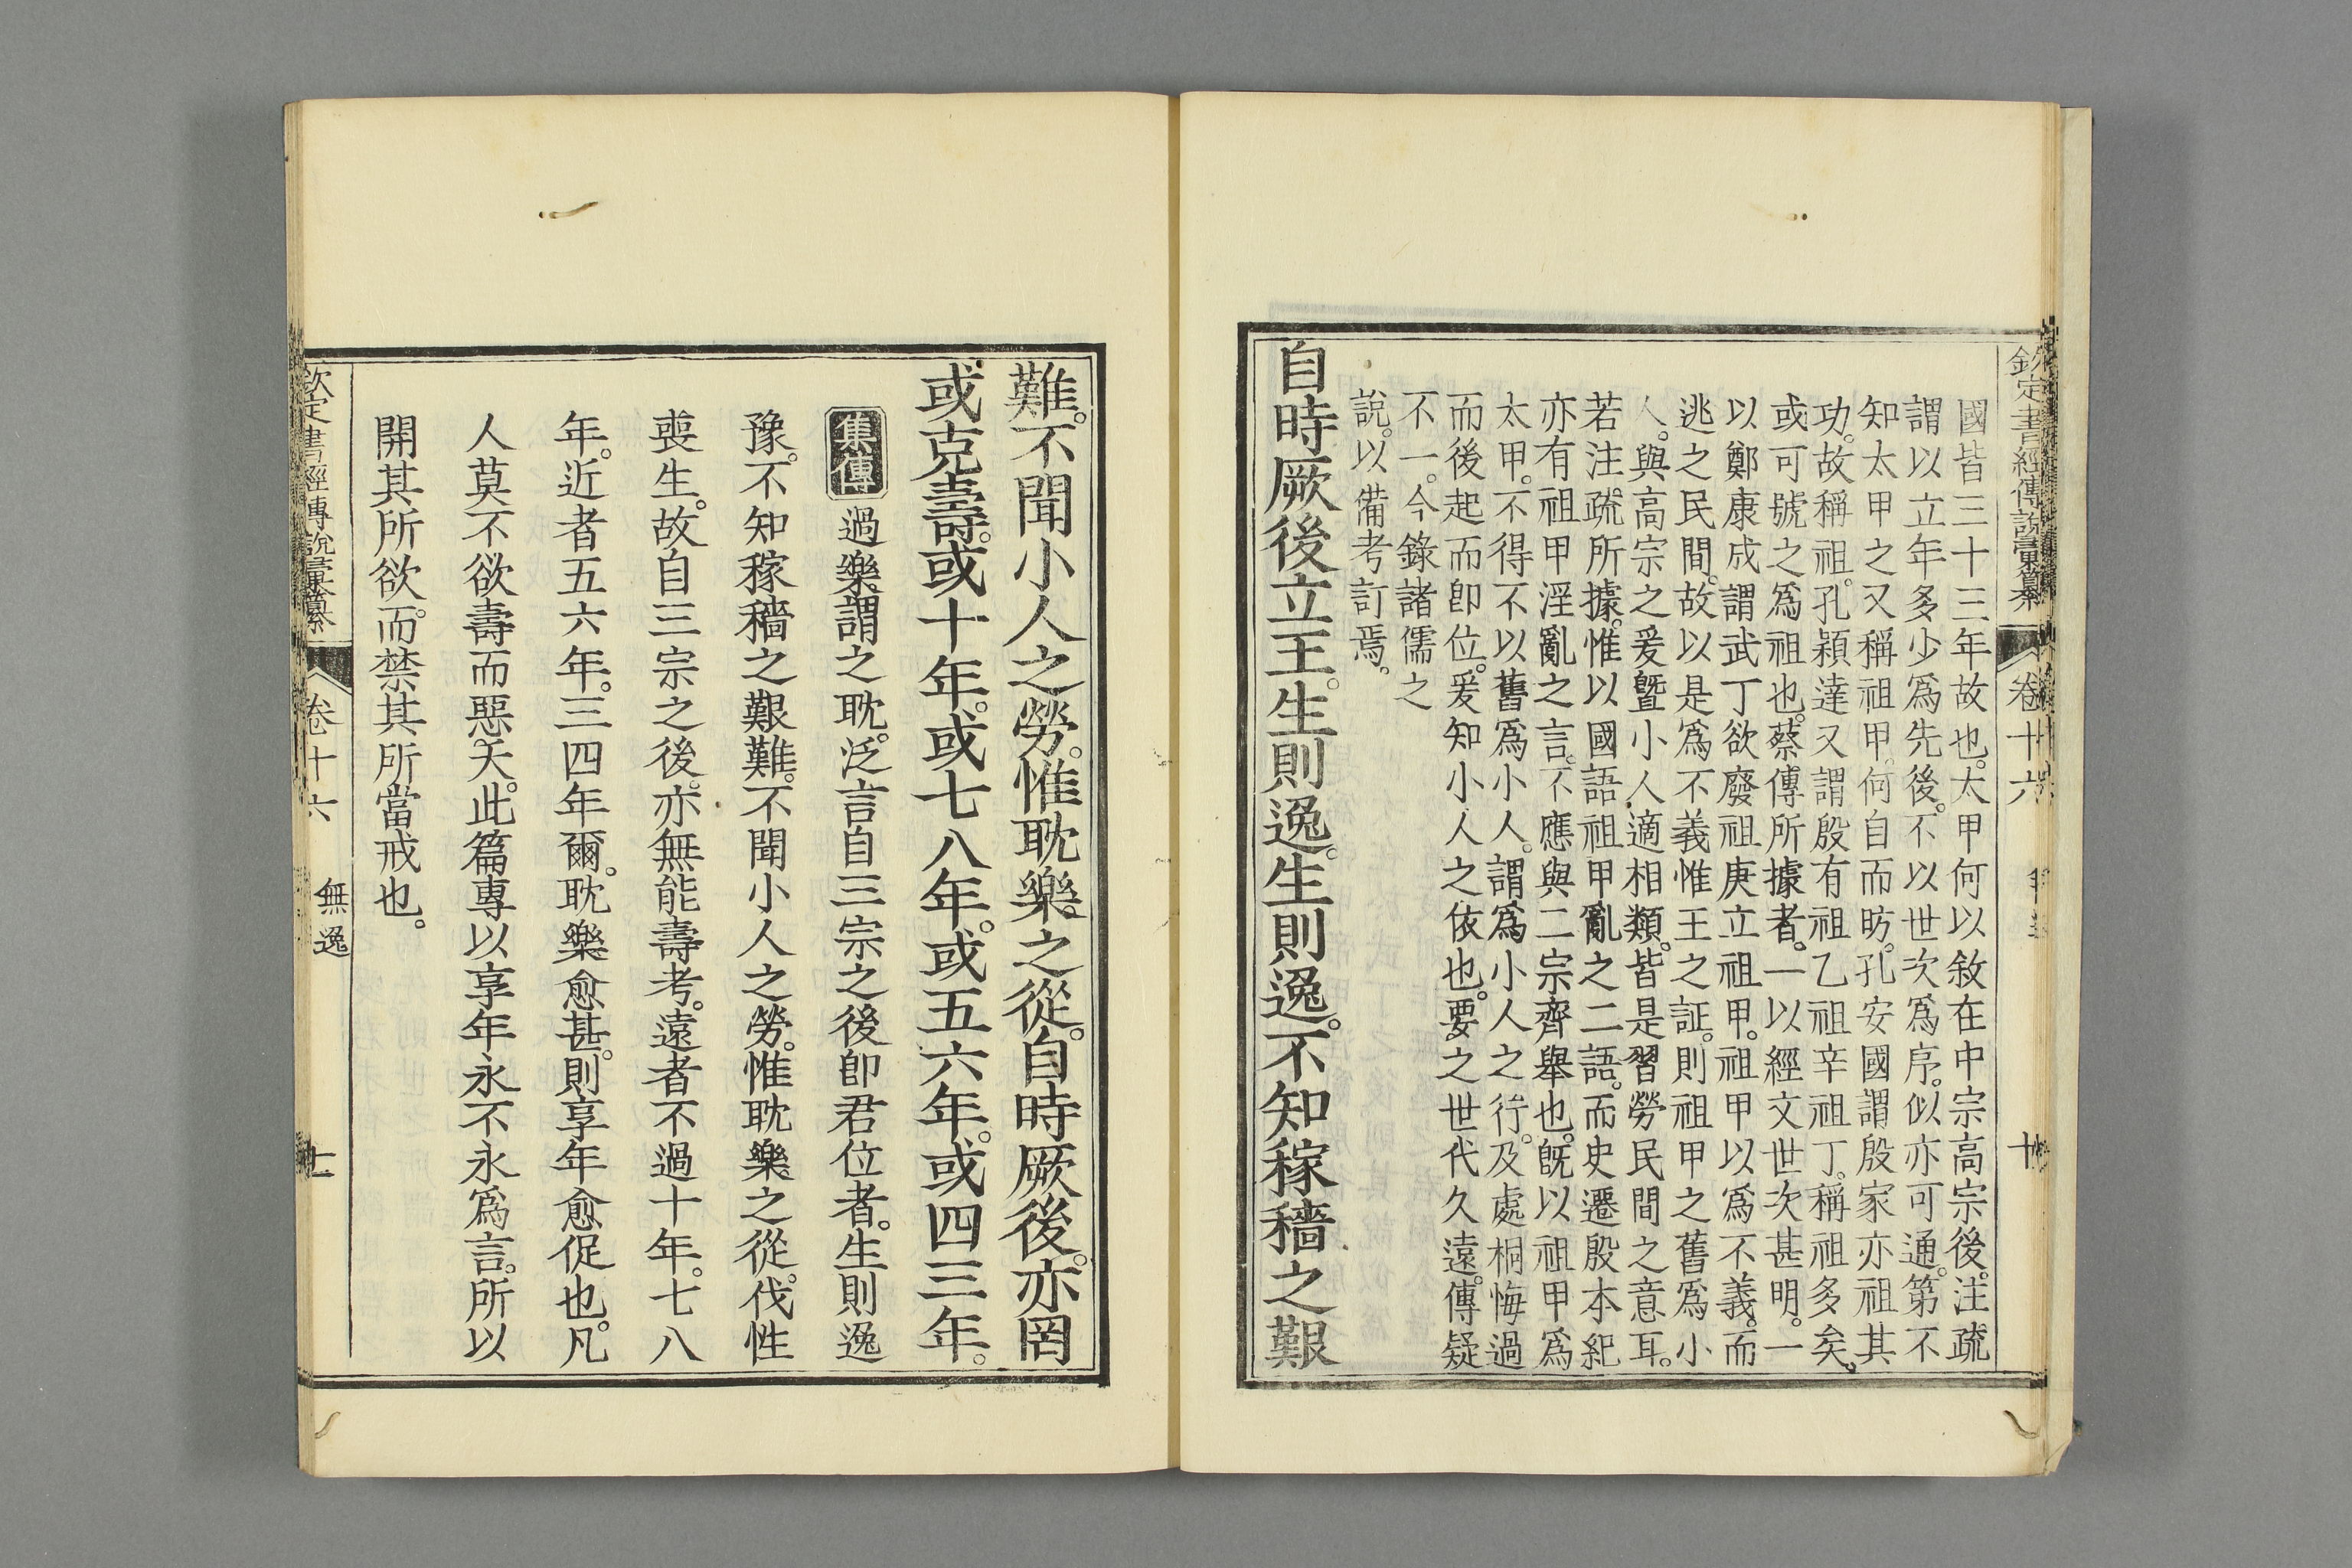 欽定書經傳說彙纂 卷十六 十
國皆三十三年故也。太甲何以敘在中宗高宗後。注疏
謂以立年多少爲先後。不以世次爲序。似亦可通。第不
知太甲之又稱祖甲。何自而昉。孔安國謂殷家亦祖其
功。故稱祖。孔穎達又謂殷有祖乙祖辛祖丁。稱祖多矣。
或可號之爲祖也。蔡傳所據者。一以經文世次甚明。一
以鄭康成謂武丁欲廢祖庚立祖甲。祖甲以爲不義。而
逃之民間。故以是爲不義惟王之証。則祖甲之舊爲小
人。與高宗之爰曁小人適相類。皆是習勞民間之意耳。
若注疏所據。惟以國語祖甲亂之二語。而史遷殷本紀
亦有祖甲淫亂之言。不應與二宗齊舉也。旣以祖甲爲
太甲。不得不以舊爲小人。謂爲小人之行。及處桐悔過
而後起而卽位。爰知小人之依也。要之世代久遠。傳疑
不一。今錄諸儒之
說。以備考訂焉。
自時厥後立王。生則逸。生則逸。不知稼穡之艱
難。不聞小人之勞。惟耽樂之從。自時厥後。亦罔
或克壽。或十年。或七八年。或五六年。或四三年。
集傳 過樂謂之耽。泛言自三宗之後卽君位者。生則逸
豫。不知稼穡之艱難。不聞小人之勞。惟耽樂之從。伐性
喪生。故自三宗之後。亦無能壽考。遠者不過十年。七八
年。近者五六年。三四年爾。耽樂愈甚。則享年愈促也。凡
人莫不欲壽而惡夭。此篇專以享年永不永爲言。所以
開其所欲。而禁其所當戒也。
欽定書經傳說彙纂 卷十六 無逸